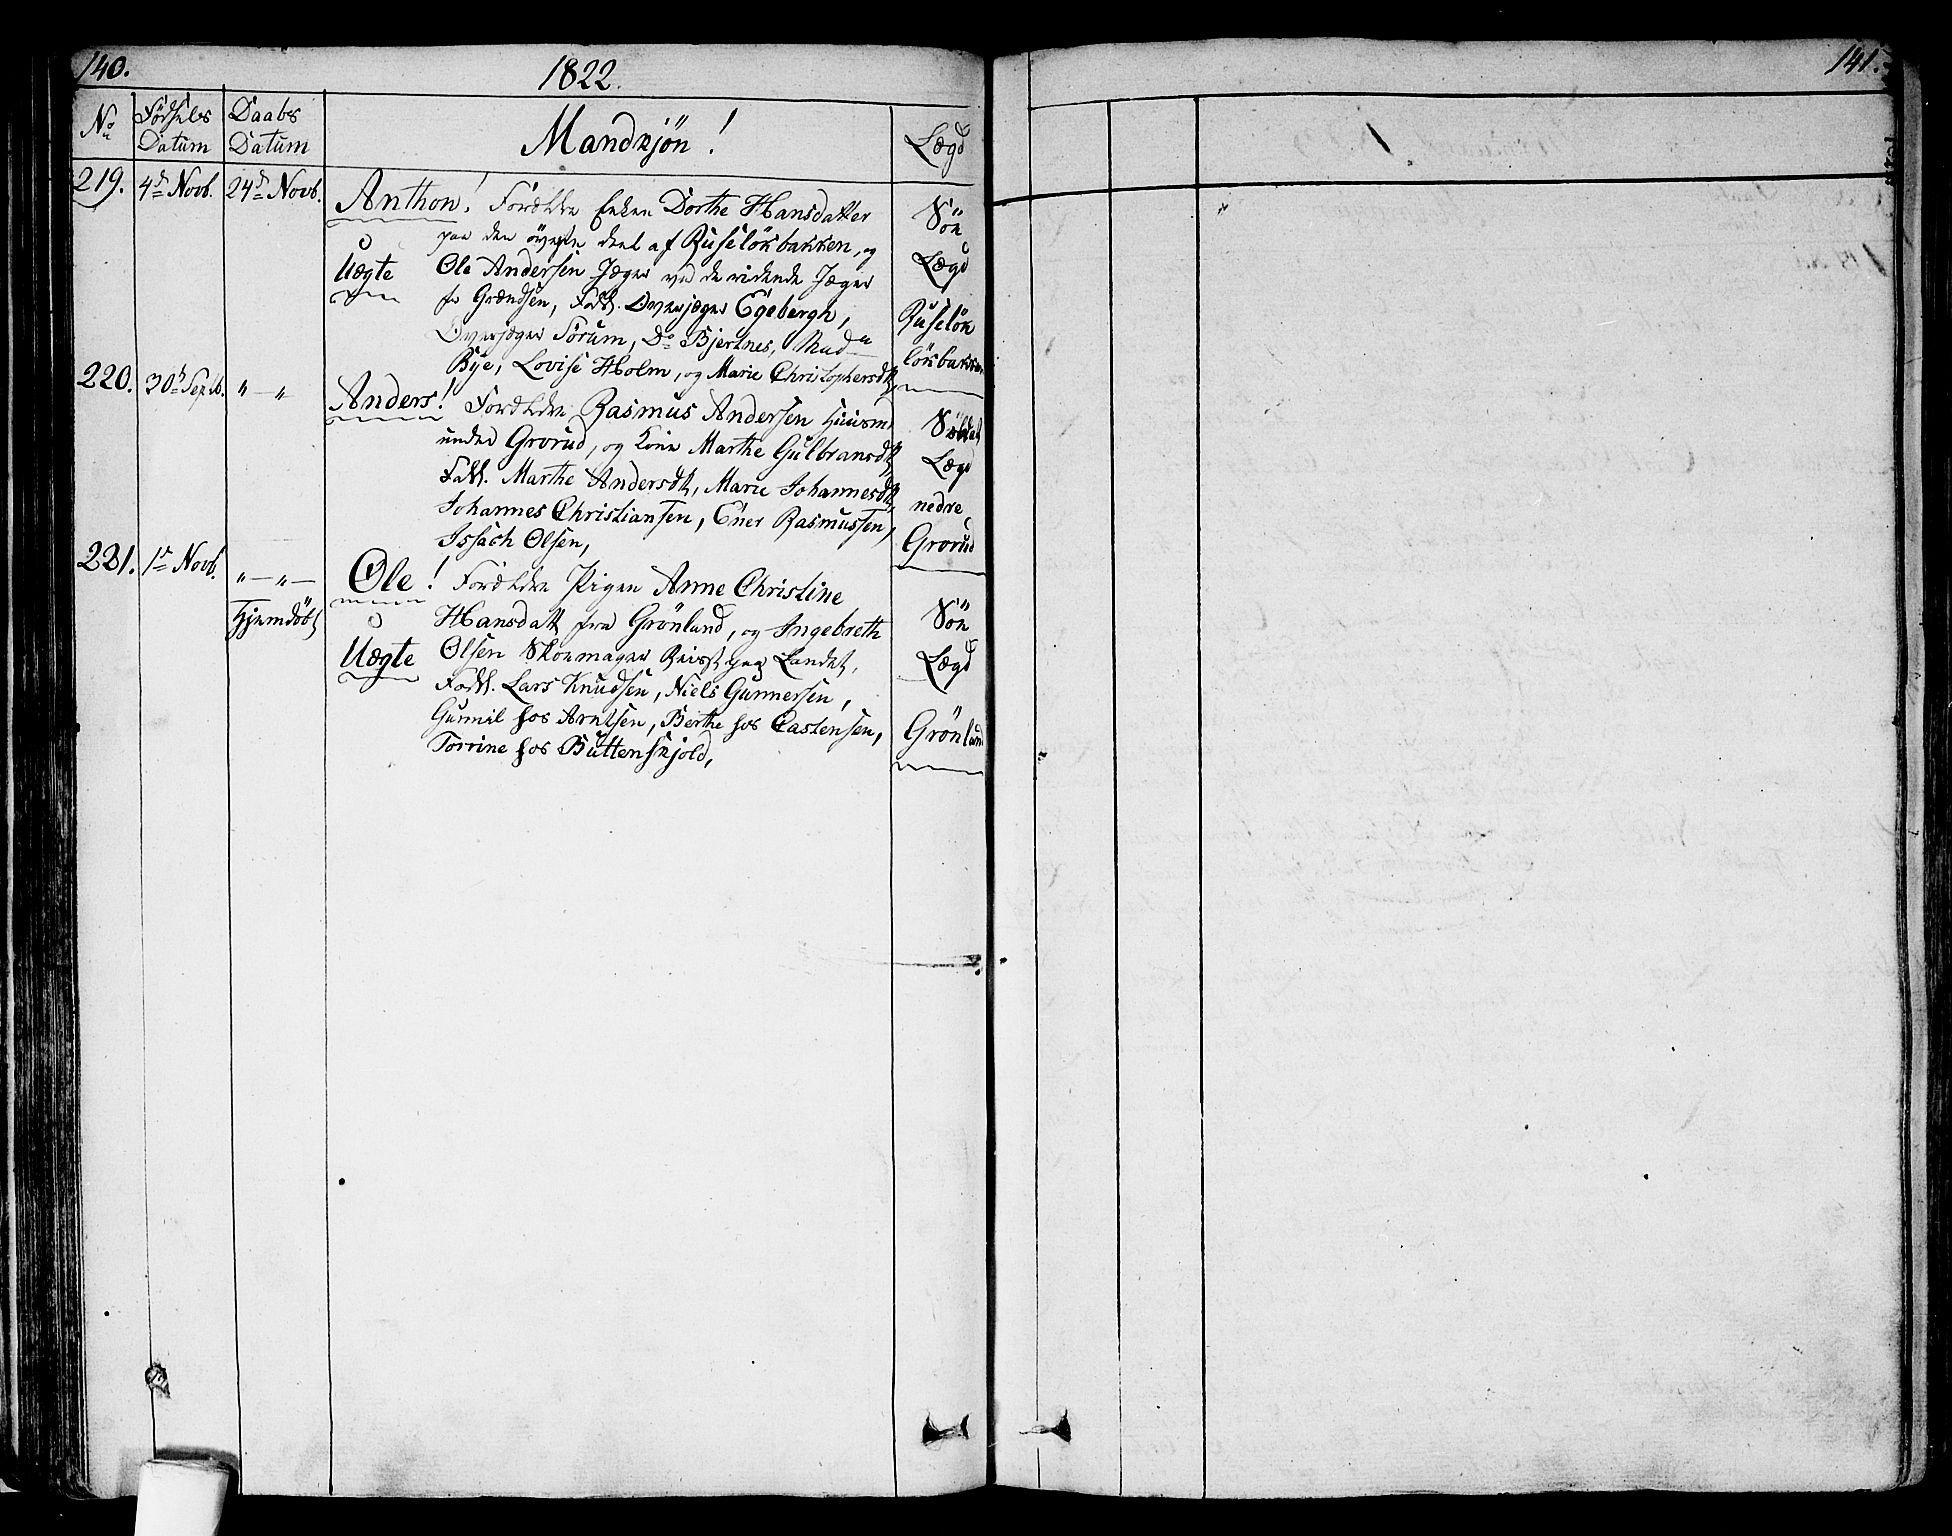 140.
1822.
No Fødsels Datum Daabs Datum Mandkjön! Lægd
219. 4de Novb. 24de Novb. Anthon! Forældre Enken Dorthe Hansdatter
paa den øverste deel af Ruseløkbakken, og
Uægte Ole Andersen Jæger ved de ridende Jæger
fr Grændsen, Fadd. Overjæger Egebergh,
Overjæger Sørum, Do Bjertnes, Madm
Bye, Lovise Holm, og Marie Christophersdtt,
Søn Lægd Ruseløk løkbakken
220. 30te Septb. " — " Anders! Forældre Rasmus Andersen Huusm
under Grorud, og Kone Marthe Gulbransdtt,
Fadd. Marthe Andersdtt, Marie Johannesdtt,
Johannes Christiansen, Ener Rasmussen,
Issach Olsen,
Lægd nedre Grorud
221. 1de Novb. " — " — Ole! Forældre Pigen Anne Christine
Hjemdöbt Hansdatt fra Grönland, og Ingebreth
Uægte Olsen Skomager Reist paa Landet,
Fadd. Lars Knudsen, Niels Gunnersen,
Gunnil hos Arntsen, Berthe hos Castensen,
Torrine hos Büttenskjold,
Sön Lægd Grönland
141.